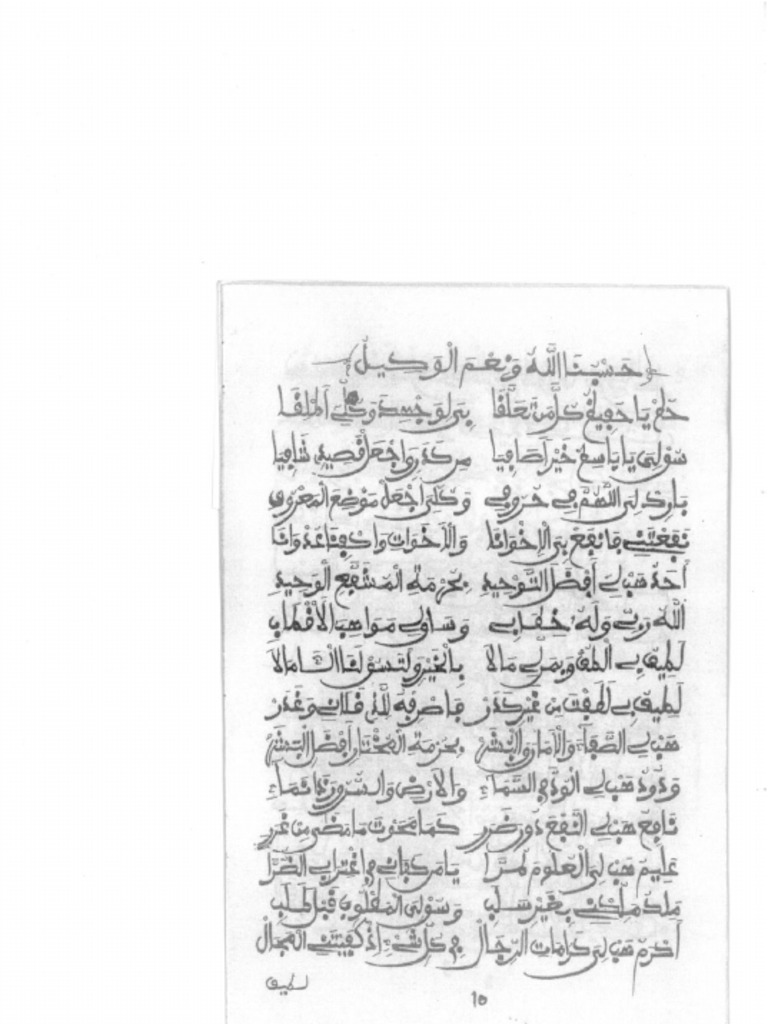 حَسْبُنَا اللَّهُ وَنِعْمَ الْوَكِيلُ
يَا حَفِيظُ كُلَّ مَن تَعَلَّقَا بِي لِوَجْهِكَ وَكُلِّي أَطْلِقَا
يَا بَاسِطُ خَيْرًا صَافِيَا مِن كَدَرٍ وَاجْعَلْ قَصِيدِي شَافِيَا
بَارِكْ لِيَ اللَّهُمَّ فِي حُرُوفِي وَكُلِّيَ اجْعَلْ مَوْضِعَ الْمَعْرُوفِ
نَفَعْتَنِي فَانفَعْ بِيَ الْإِخْوَانَا وَالْأَخَوَاتِ وَاكْفِنَا عُدْوَانَا
أَحَدُ هَبْ لِي أَفْضَلَ التَّوْحِيدِ بِحُرْمَةِ الْمُشَفَّعِ الْوَحِيدِ
اللَّهُ رَبِّي وَلَهُ خِطَابِي وَسَاقَ لِي مَوَاهِبَ الْأَقْطَابِ
لَطِيفُ بِي الْطُفْ مَالَا بِالْخَيْرِ وَلْتَسُقْ لَنَا
لَطِيفُ بِي لَطَفْتَ مِن غَيْرِ كَدَرْ قَلَانِي وَغَدَرْ
هَبْ لِي الصَّفَاءَ وَالْأَمَانَ وَالْبِشَرْ بِحُرْمَةِ الْمُخْتَارِ أَفْضَلِ الْبَشَرْ
وَدُودُ هَبْ لِي الْوُدَّ فِي السَّمَاءِ وَالْأَرْضِ وَالسُّرُورَ ذَا نَمَاءِ
نَافِعُ هَبْ لِي النَّفْعَ دُونَ ضَرَرِ كَمَا مَحَوْتَ مَا مَضَى مِن غَرَرِ
عَلِيمُ هَبْ لِيَ الْعُلُومَ طُرَّا يَا مَن كَفَانِي فِي اغْتِرَابِ الضُّرَّا
مَلِكُ مَلِّكْنِي بِغَيْرِ سَلْبِ الْمَطْلُوبَ قَبْلَ الطَّلَبِ
أَكْرَمُ هَبْ لِي كَرَامَاتِ الرِّجَالْ فِي كُلِّ شَيْءٍ إِذْ كَفَيْتَنِي
لطيف
10